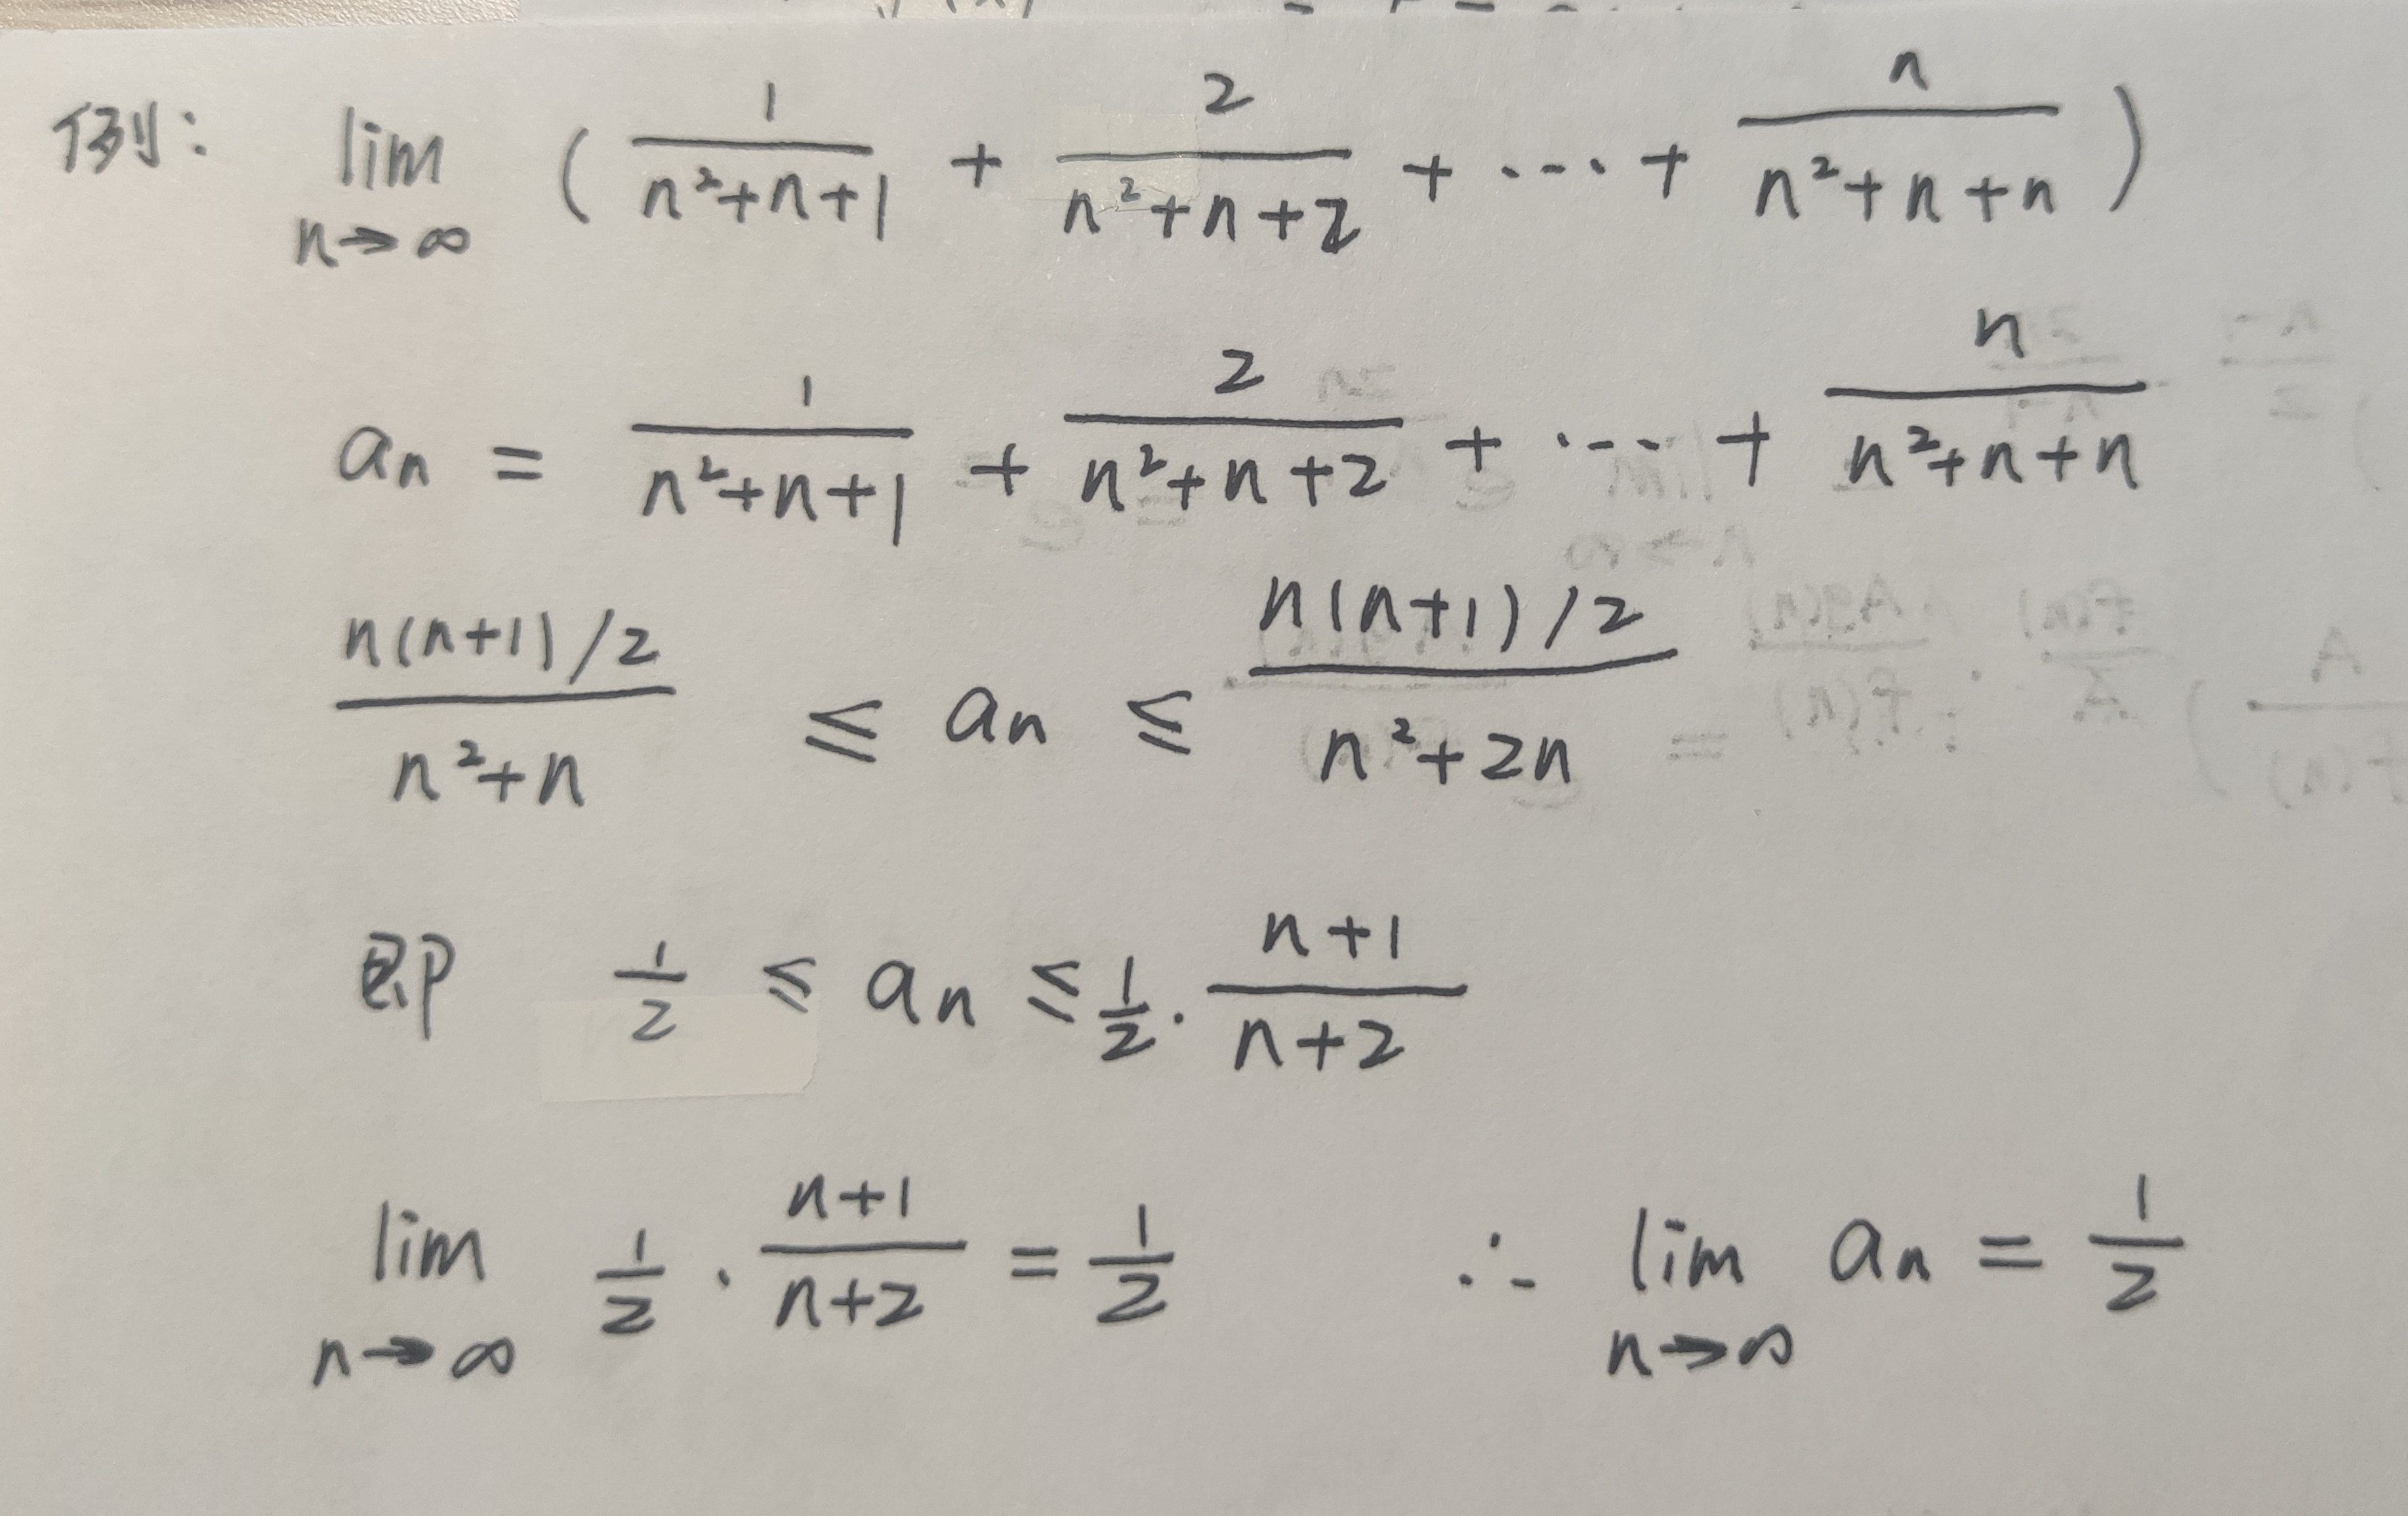 例: lim n→∞ ( 1/(n²+n+1) + 2/(n²+n+2) + ··· + n/(n²+n+n) )
an = 1/(n²+n+1) + 2/(n²+n+2) + ··· + n/(n²+n+n)
(n(n+1)/2)/(n²+n) ≤ an ≤ (n(n+1)/2)/(n²+2n)
即 1/2 ≤ an ≤ 1/2 · (n+1)/(n+2)
lim n→∞ 1/2 · (n+1)/(n+2) = 1/2 ∴ lim n→∞ an = 1/2